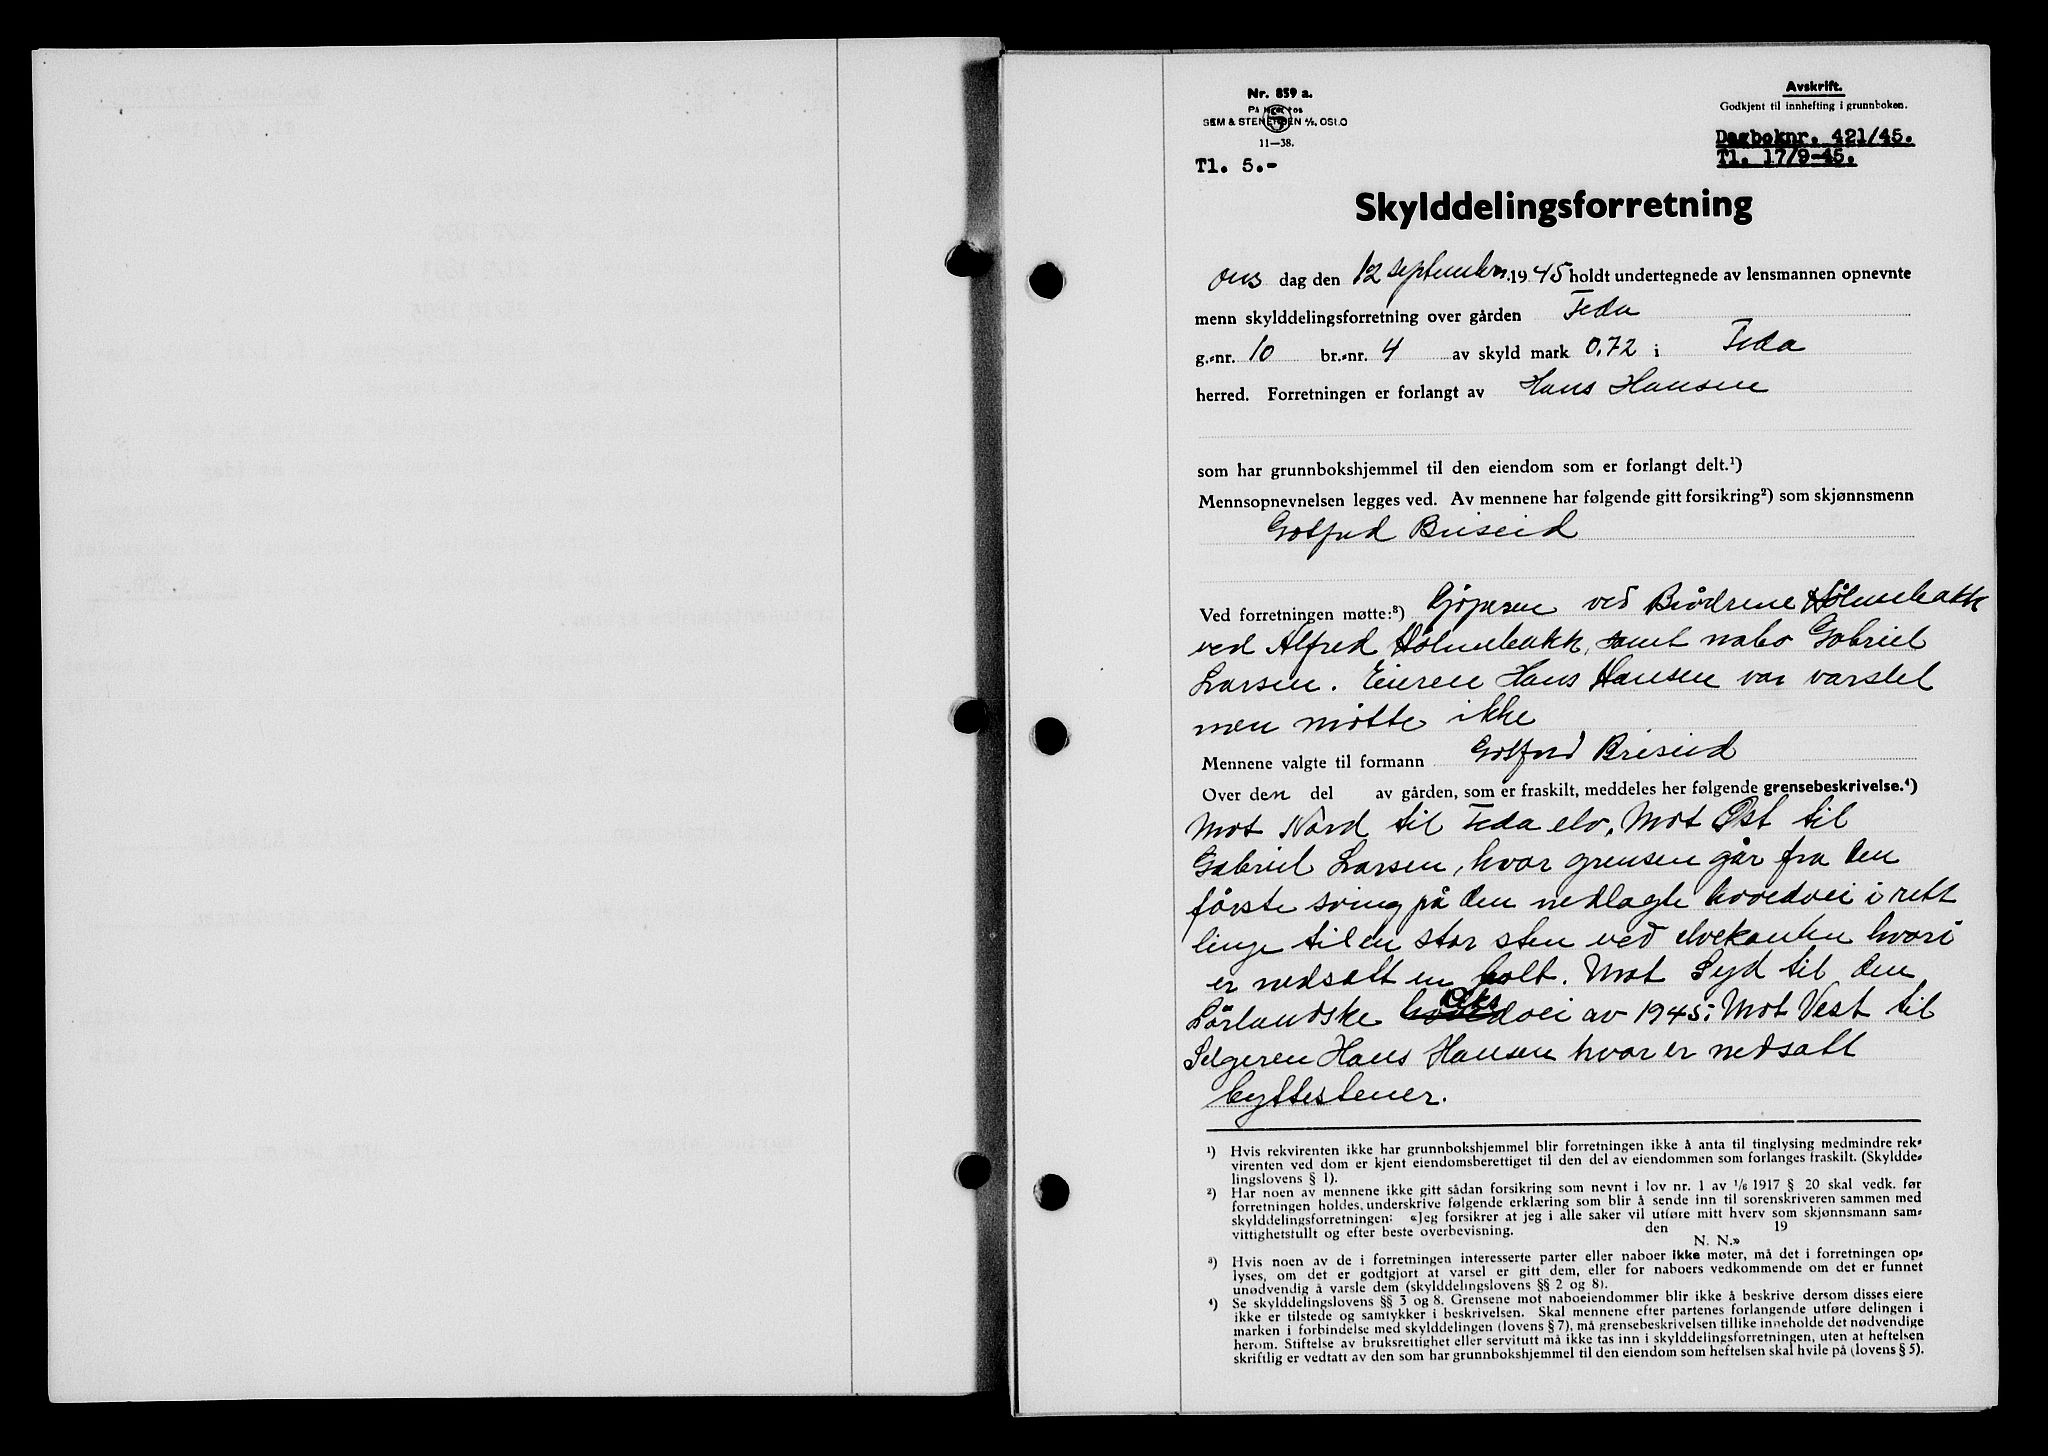 Nr. 859 a.
På lager hos
SEM & STENERSEN A/S, OSLO
11—38.
Tl. 5.-
Avskrift.
Godkjent til innhefting i grunnboken.
Dagboknr. 421/45.
Tl. 17/9-45.
Skylddelingsforretning
ons dag den 12 september 1945 holdt undertegnede av lensmannen opnevnte
menn skylddelingsforretning over gården Feda
g.-nr. 10 br.-nr. 4 av skyld mark 0,72 i Feda
herred. Forretningen er forlangt av Hans Hansen
som har grunnbokshjemmel til den eiendom som er forlangt delt.¹)
Mennsopnevnelsen legges ved. Av mennene har følgende gitt forsikring²) som skjønnsmenn
Gotfred Briseid
Ved forretningen møtte:³) Kjøperen ved Brødrene Holmebakk
ved Alfred Holmebakk, samt nabo Gabriel
Larsen. Eieren Hans Hansen var varslet
men møtte ikke
Mennene valgte til formann Gotfred Briseid
Over den del av gården, som er fraskilt, meddeles her følgende grensebeskrivelse.⁴)
Mot Nord til Feda elv. Mot Øst til
Gabriel Larsen, hvor grensen går fra den
første sving på den nedlagte hovedvei i rett
linje til en stor sten ved elvekanten hvori
er nedsatt en bolt. Mot Syd til den
Sørlandske riksvei av 1945. Mot Vest til
Selgeren Hans Hansen hvor er nedsatt
byttestener.
¹) Hvis rekvirenten ikke har grunnbokshjemmel blir forretningen ikke å anta til tinglysing medmindre rek-
virenten ved dom er kjent eiendomsberettiget til den del av eiendommen som forlanges fraskilt. (Skyldde-
lingslovens § 1).
²) Har noen av mennene ikke gitt sådan forsikring som nevnt i lov nr. 1 av 1/6 1917 § 20 skal vedk. før
forretningen holdes, underskrive følgende erklæring som blir å sende inn til sorenskriveren sammen med
skylddelingsforretningen: «Jeg forsikrer at jeg i alle saker vil utføre mitt hverv som skjønnsmann sam-
vittighetsfullt og efter beste overbevisning. den 19
N. N.»
³) Hvis noen av de i forretningen interesserte parter eller naboer ikke møter, må det i forretningen op-
lyses, om det er godtgjort at varsel er gitt dem, eller for naboers vedkommende om det er funnet
unødvendig å varsle dem (skylddelingslovens §§ 2 og 8).
⁴) Se skylddelingslovens §§ 3 og 8. Grensene mot naboeiendommer blir ikke å beskrive dersom disses eiere
ikke er tilstede og samtykker i beskrivelsen. Skal mennene efter partenes forlangende utføre delingen i
marken i forbindelse med skylddelingen (lovens § 7), må grensebeskrivelsen tillike inneholde det nødvendige
herom. Stiftelse av bruksrettighet eller servitutt må ikke tas inn i skylddelingsforretningen, uten at heftelsen
skriftlig er vedtatt av den som har grunnbokshjemmel til den eiendom som heftelsen skal hvile på (lovens § 5).